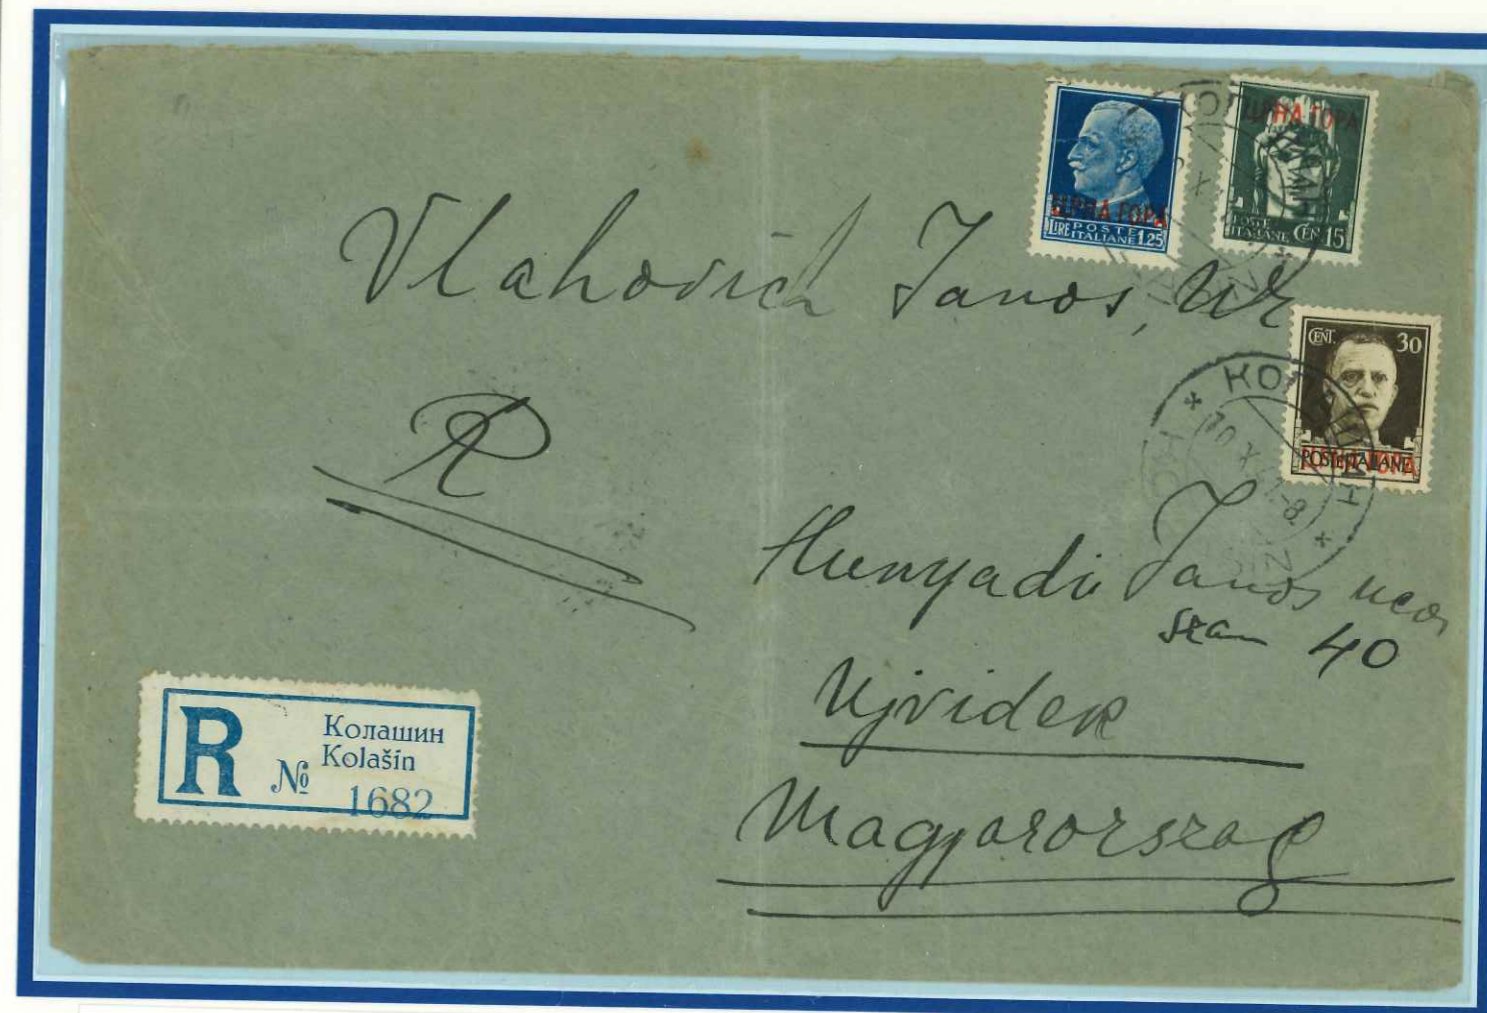 ЦРНА ГОРА
LIRE POSTE ITALIANE 1.25
ЦРНА ГОРА
POSTE ITALIANE CEN. 15
Vlahovich Janos, Ur
CENT. 30
POSTE ITALIANE
ЦРНА ГОРА
КОЛАШИН
10 X 41-8
R
Hunyadi Janos ucca
szam 40
Ujvidek
Magyarorszag
R
Колашин
Kolašin
№ 1682